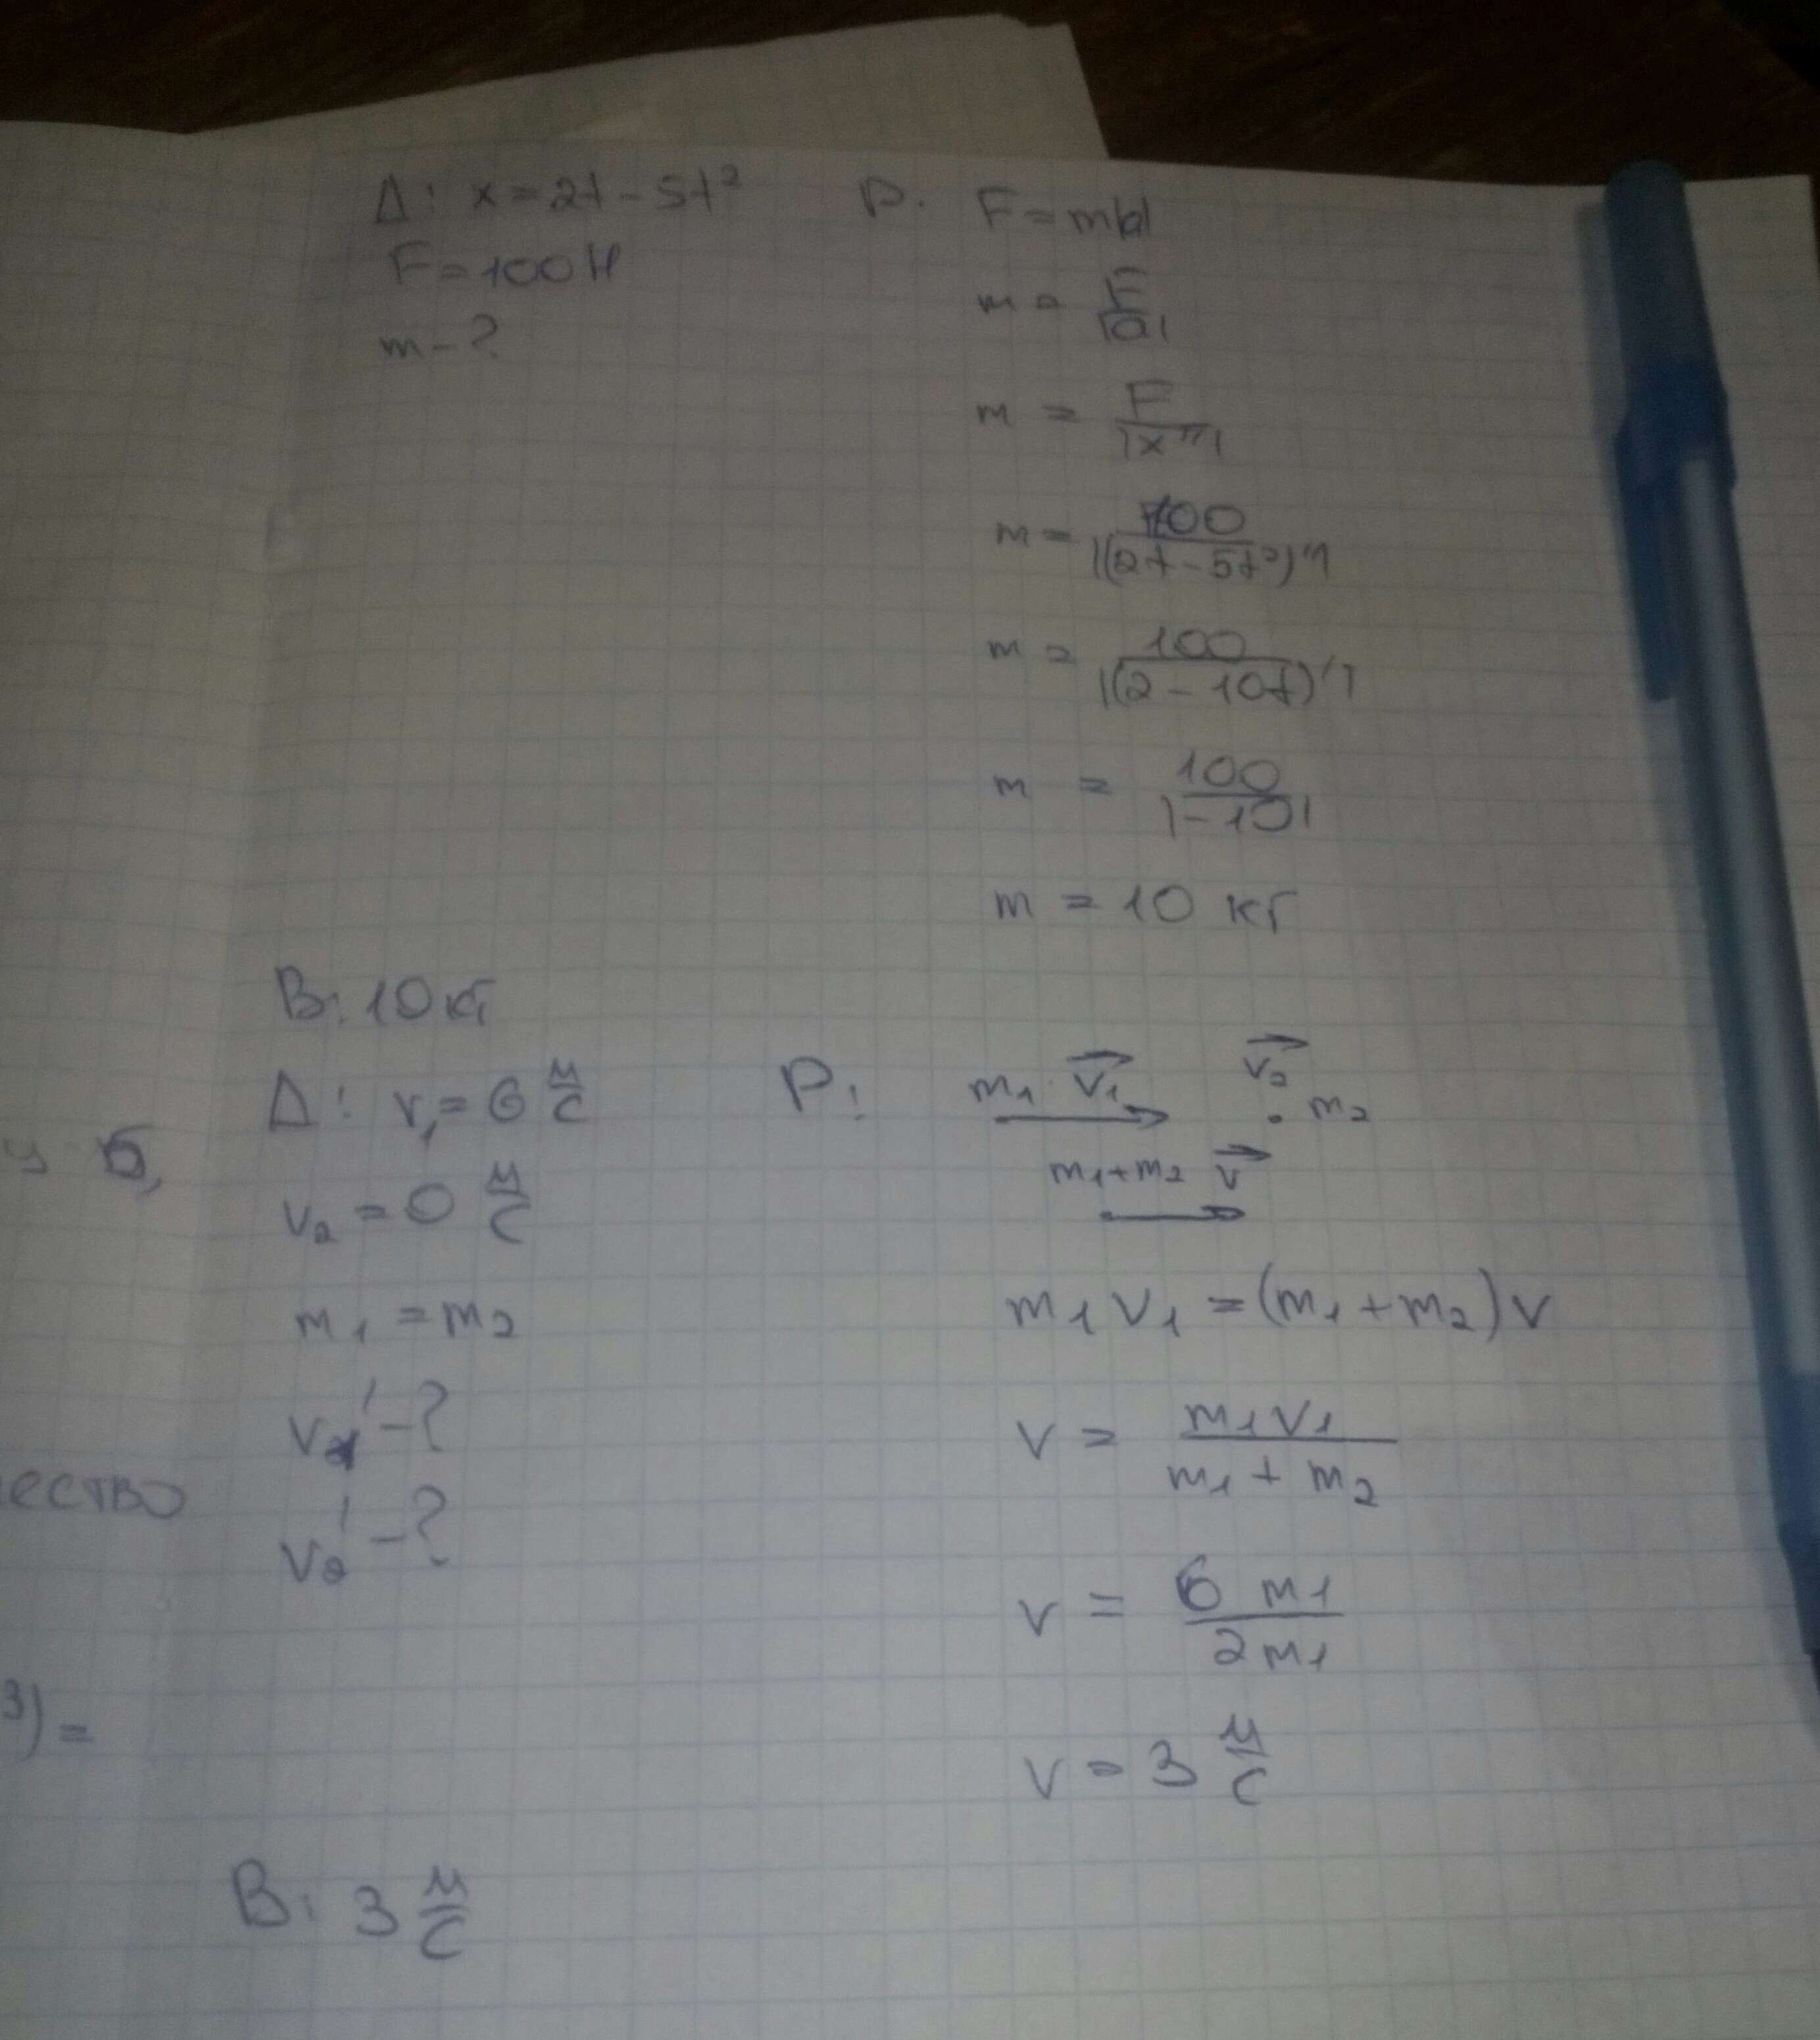 Д: x = 2t - 5t²
F = 100 Н
m - ?
Р. F = m|a|
m = F/|a|
m = F/|x''|
m = 100/|(2t - 5t²)''|
m = 100/|(2 - 10t)'|
m = 100/|-10|
m = 10 кг
В: 10 кг
Д: v₁ = 6 м/с
v₂ = 0 м/с
m₁ = m₂
v₁' - ?
v₂' - ?
Р: m₁ v₁→ v₂→
m₂
m₁+m₂ v→
m₁v₁ = (m₁ + m₂)v
v = m₁v₁/(m₁ + m₂)
v = 6 m₁/2m₁
v = 3 м/с
В: 3 м/с
ество
3) =